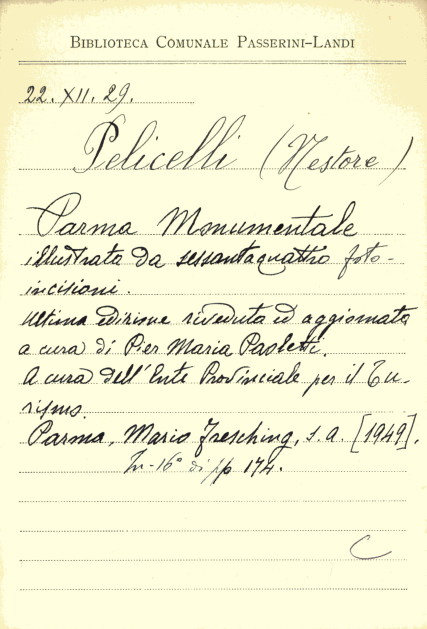 BIBLIOTECA COMUNALE PASSERINI-LANDI
22. XII. 29.
Pelicelli (Nestore)
Parma Monumentale
illustrata da sessantaquattro foto-
incisioni.
Ultima edizione riveduta ed aggiornata
a cura di Pier Maria Paoletti.
A cura dell'Ente Provinciale per il Tu-
rismo.
Parma, Mario Fresching, s. a. [1949].
In-16° di pp 174.
C